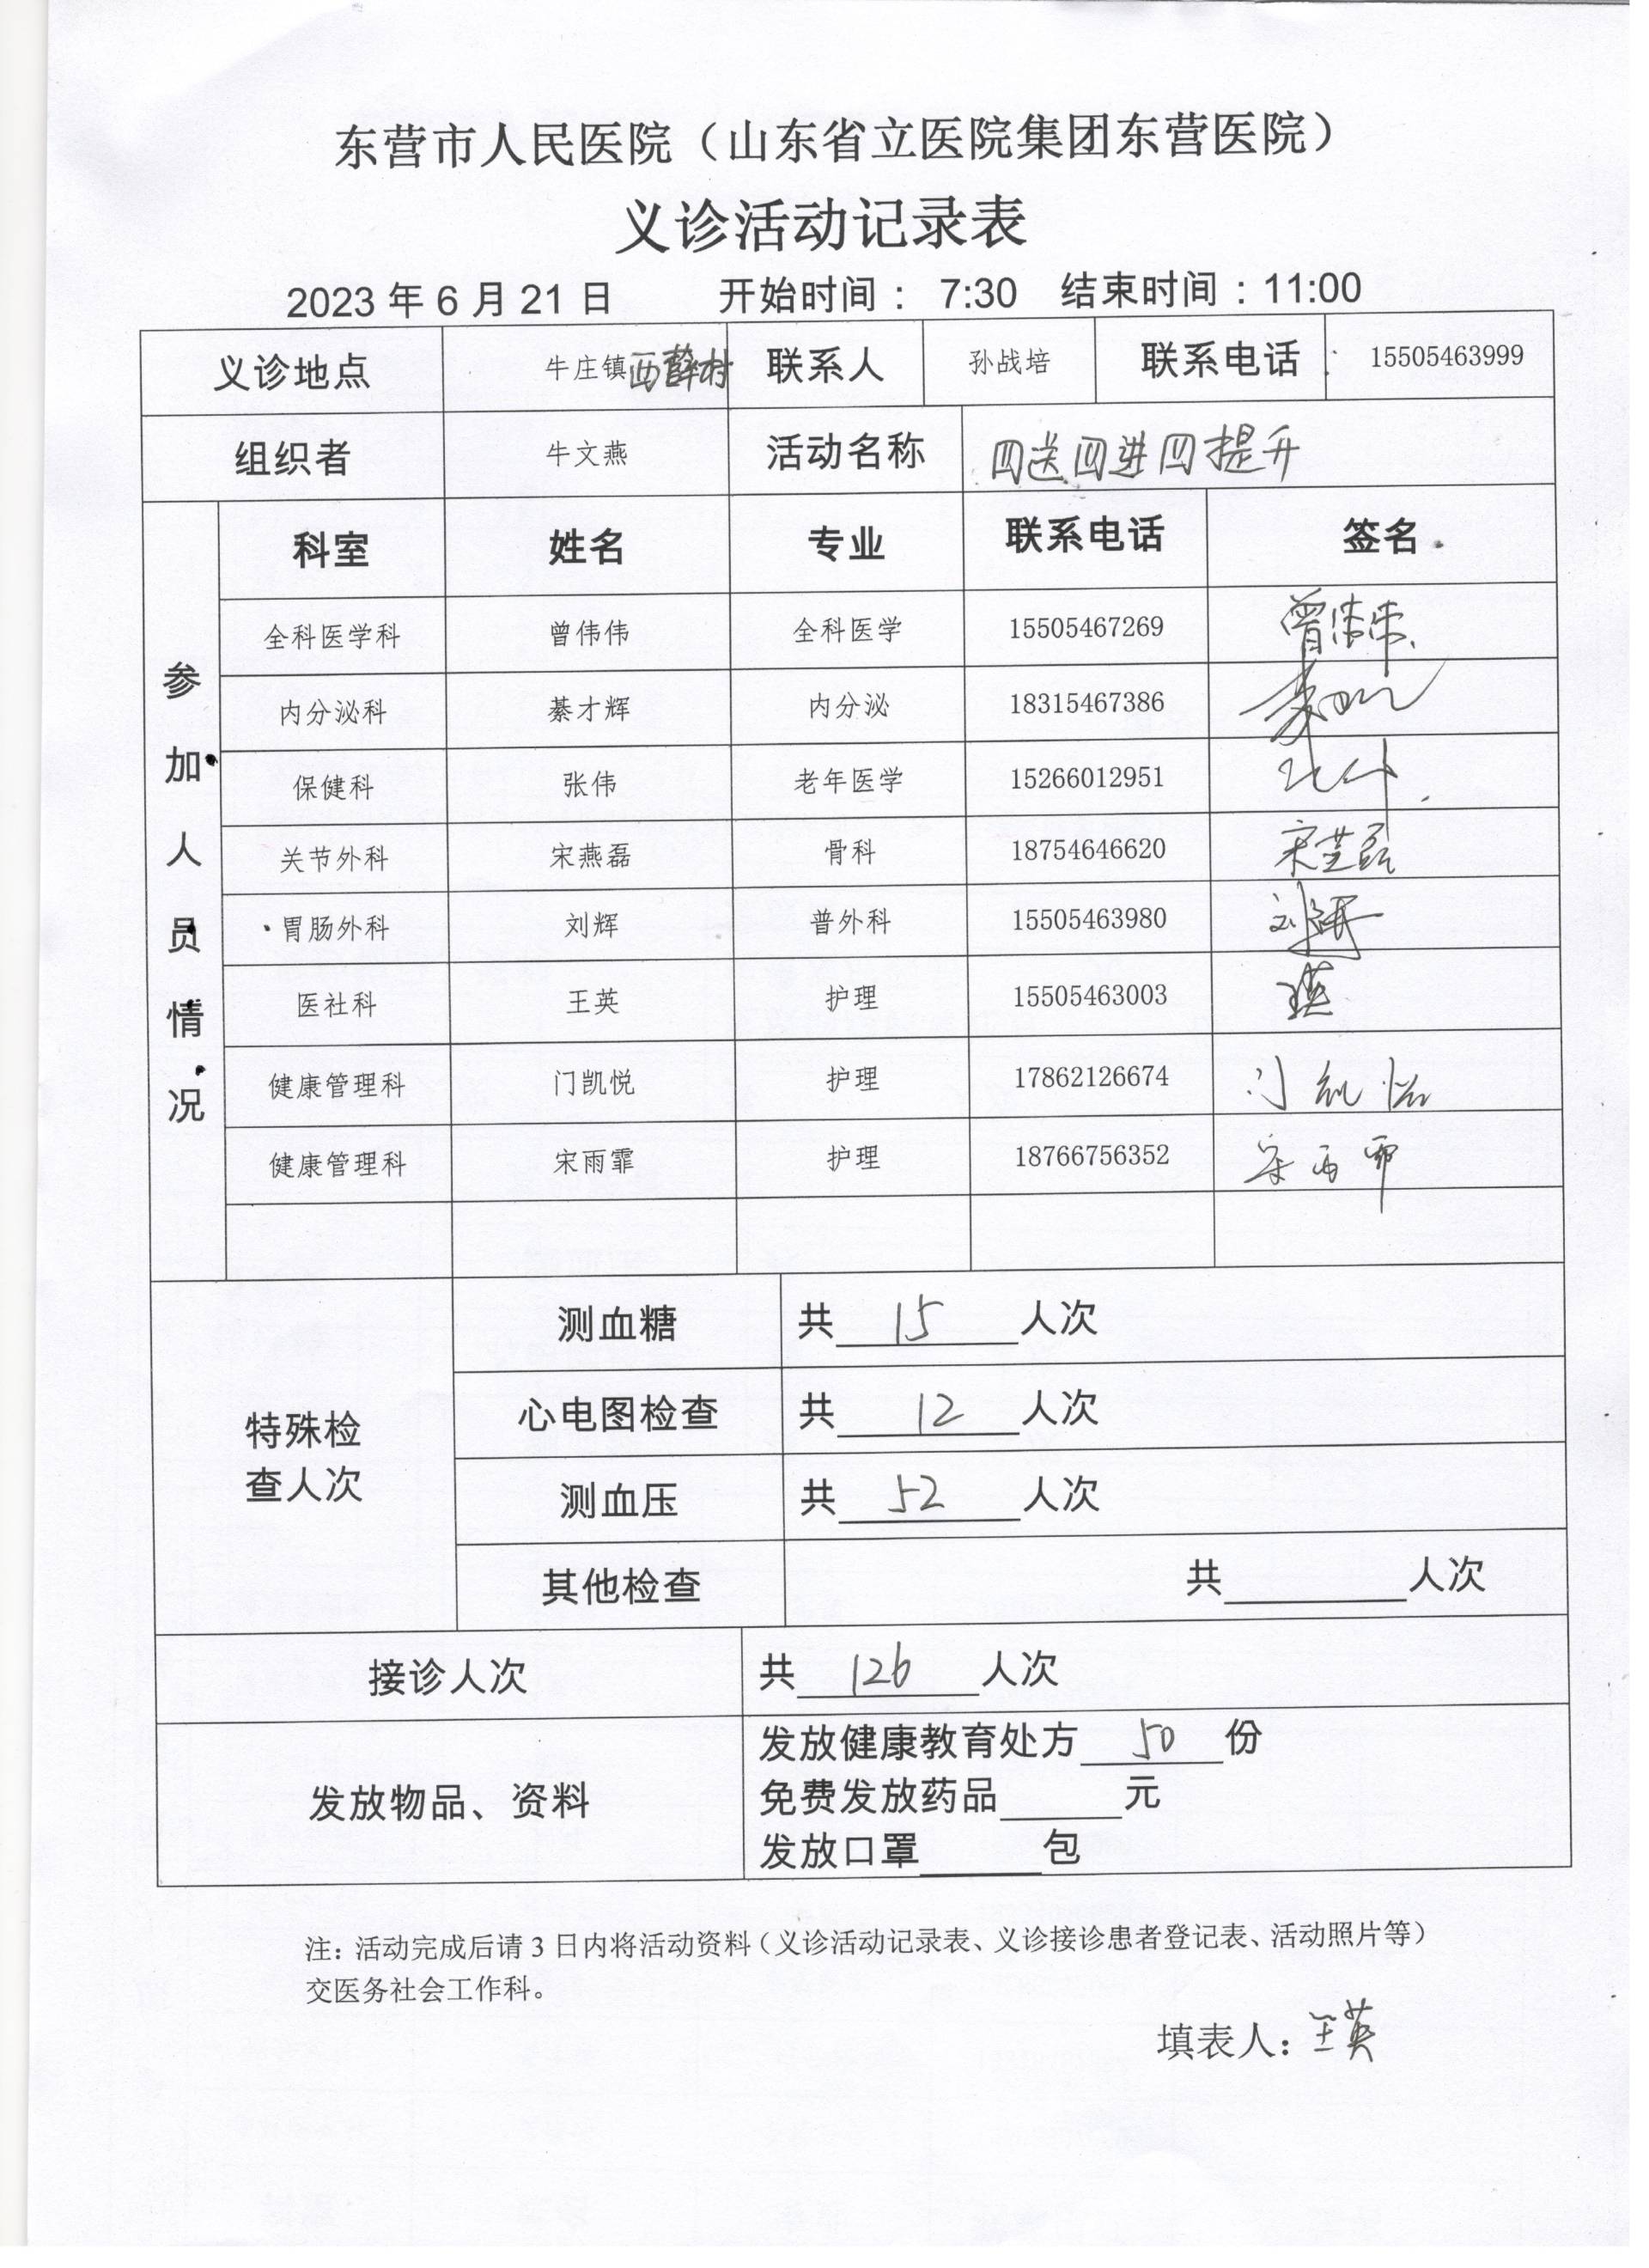 东营市人民医院（山东省立医院集团东营医院）
义诊活动记录表
2023 年 6 月 21 日 开始时间： 7:30 结束时间：11:00
义诊地点 牛庄镇西薛村 联系人 孙战培 联系电话 15505463999
组织者 牛文燕 活动名称 四送四进四提升
参加人员情况
科室 姓名 专业 联系电话 签名
全科医学科 曾伟伟 全科医学 15505467269 曾伟伟
内分泌科 綦才辉 内分泌 18315467386
保健科 张伟 老年医学 15266012951 张伟
关节外科 宋燕磊 骨科 18754646620 宋燕磊
胃肠外科 刘辉 普外科 15505463980 刘辉
医社科 王英 护理 15505463003 王英
健康管理科 门凯悦 护理 17862126674 门凯悦
健康管理科 宋雨霏 护理 18766756352 宋雨霏
特殊检
查人次
测血糖 共 15 人次
心电图检查 共 12 人次
测血压 共 52 人次
其他检查 共 人次
接诊人次 共 126 人次
发放物品、资料
发放健康教育处方 50 份
免费发放药品 元
发放口罩 包
注：活动完成后请 3 日内将活动资料（义诊活动记录表、义诊接诊患者登记表、活动照片等）
交医务社会工作科。
填表人：王英